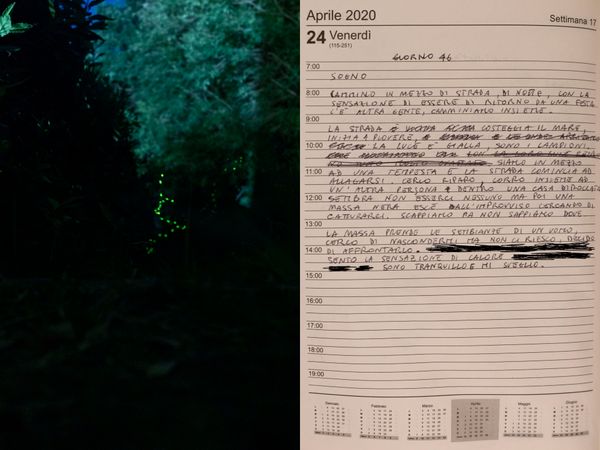 Aprile 2020
Settimana 17
24 Venerdì
(115-251)
GIORNO 46
7:00
SOGNO
8:00 CAMMINO IN MEZZO DI STRADA, DI NOTTE, CON LA
SENSAZIONE DI ESSERE DI RITORNO DA UNA FESTA
9:00 C'È ALTRA GENTE, CAMMINIAMO INSIEME.
LA STRADA COSTEGGIA IL MARE,
INIZIA A PIOVERE,
10:00 LA LUCE È GIALLA, SONO I LAMPIONI.
SIAMO IN MEZZO
11:00 AD UNA TEMPESTA E LA STRADA COMINCIA AD
ALLAGARSI. CERCO RIPARO, CORRO INSIEME AD
UN'ALTRA PERSONA DENTRO UNA CASA
12:00 SEMBRA NON ESSERCI NESSUNO MA POI UNA
MASSA NERA ESCE DALL'IMPROVVISO CERCANDO DI
CATTURARCI. SCAPPIAMO MA NON SAPPIAMO DOVE.
13:00
LA MASSA PRENDE LE SEMBIANZE DI UN UOMO,
CERCO DI NASCONDERMI MA NON CI RIESCO, DECIDO
14:00 DI AFFRONTARLO.
SENTO LA SENSAZIONE DI CALORE
SONO TRANQUILLO E MI SVEGLIO.
15:00
16:00
17:00
18:00
19:00
Gennaio Febbraio Marzo Aprile Maggio Giugno